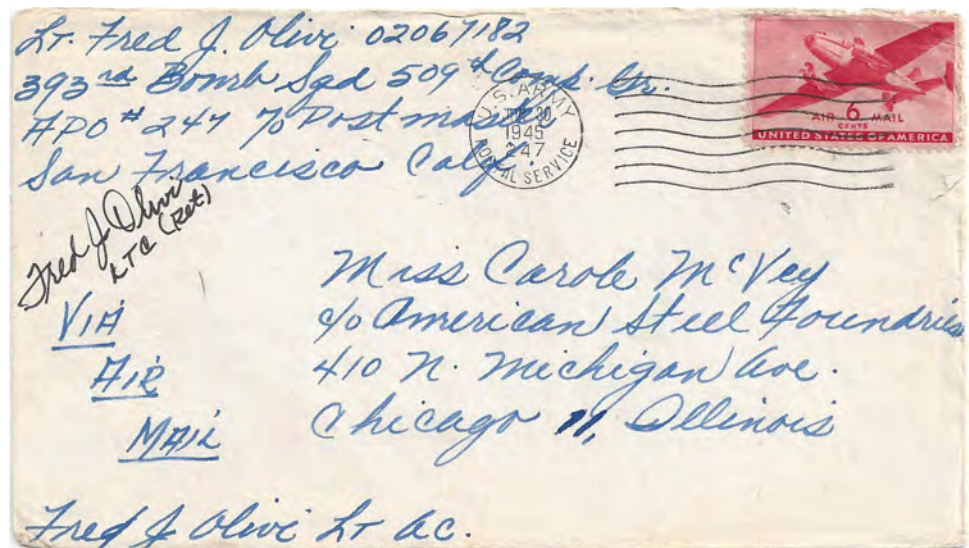 Lt. Fred J. Olivi 02067182
393rd Bomb Sqd 509th Comp. Gr.
APO # 247 % Postmaster
San Francisco Calif.
U.S. ARMY
30
1945
247
POSTAL SERVICE
AIR 6 MAIL
CENTS
UNITED STATES OF AMERICA
Fred J Olivi
LTC (Ret)
VIA
AIR
MAIL
Miss Carole McVey
c/o American Steel Foundries
410 N. Michigan Ave.
Chicago 11, Illinois
Fred J Olivi Lt AC.